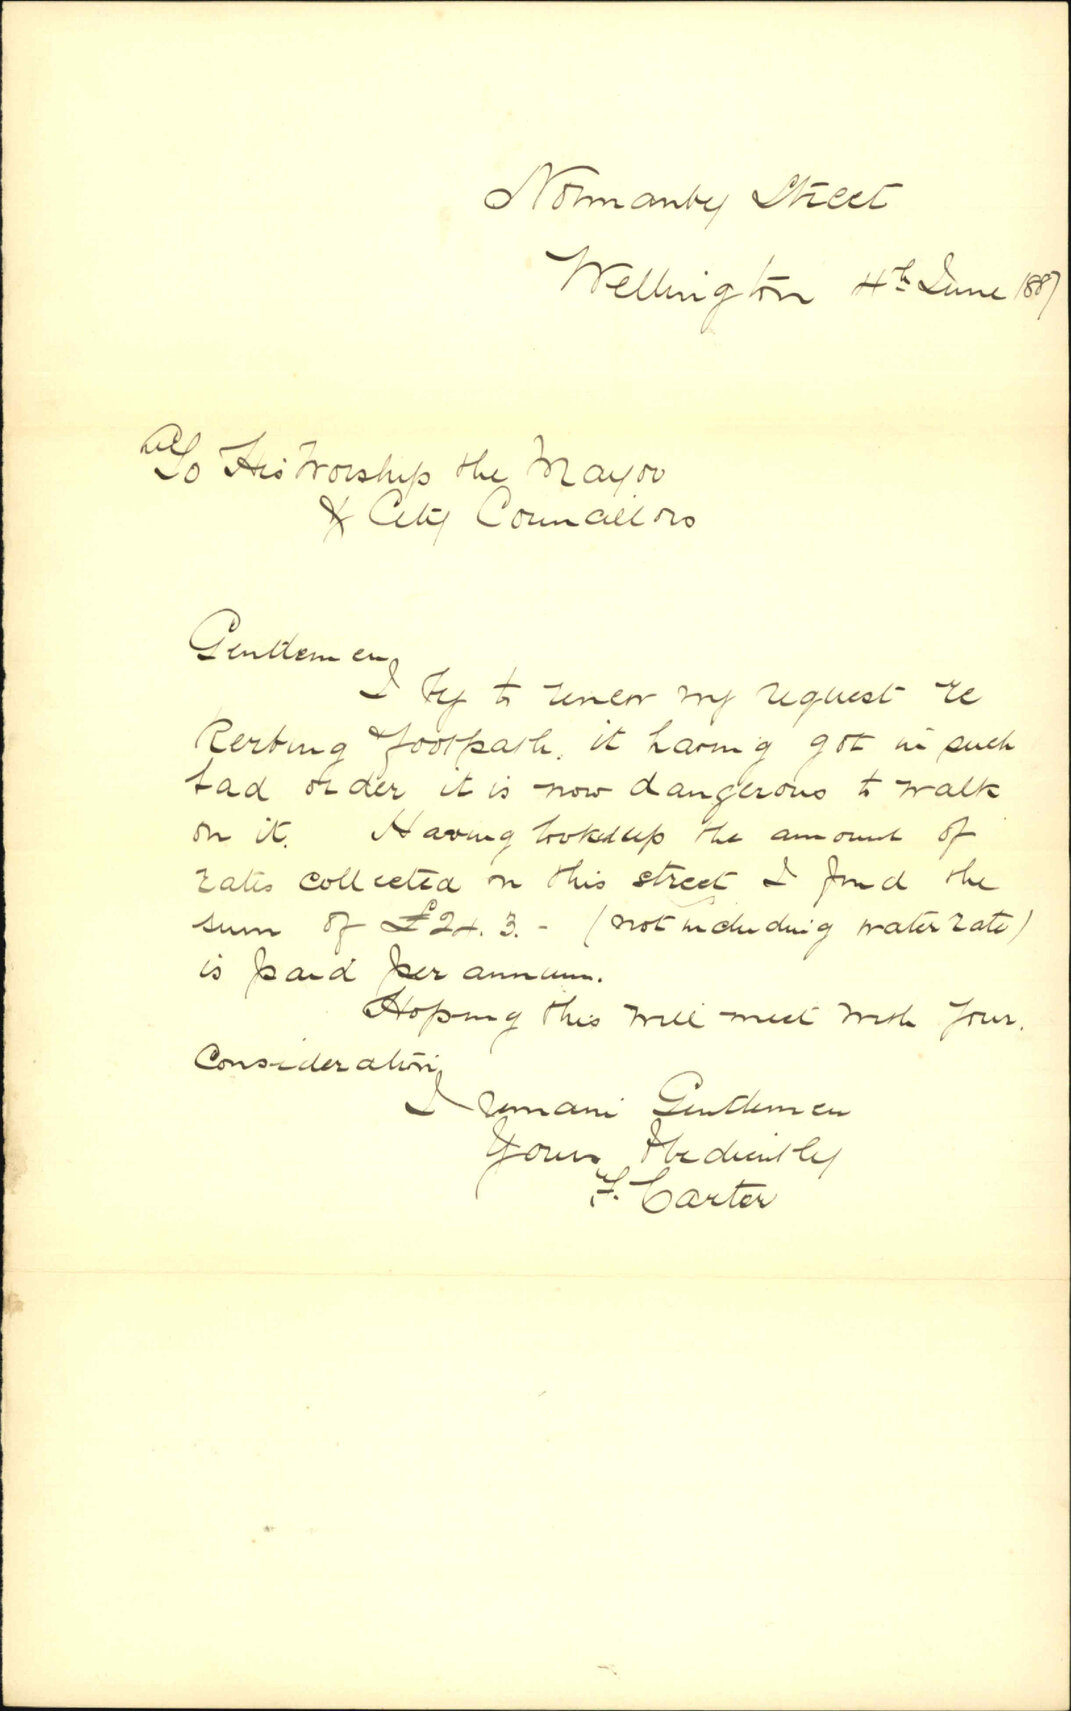 Normanby Street
Wellington 4th June 1887
To His Worship the Mayor
& City Councillors
Gentlemen
I beg to renew my request re
Kerbing footpath, it having got in such
bad order it is now dangerous to walk
on it. Having looked up the amount of
rates collected on this street I find the
sum of £24.3.- (not including water rate)
is paid per annum.
Hoping this will meet with your
Consideration
I remain Gentlemen
Yours Obediently
F. Carter